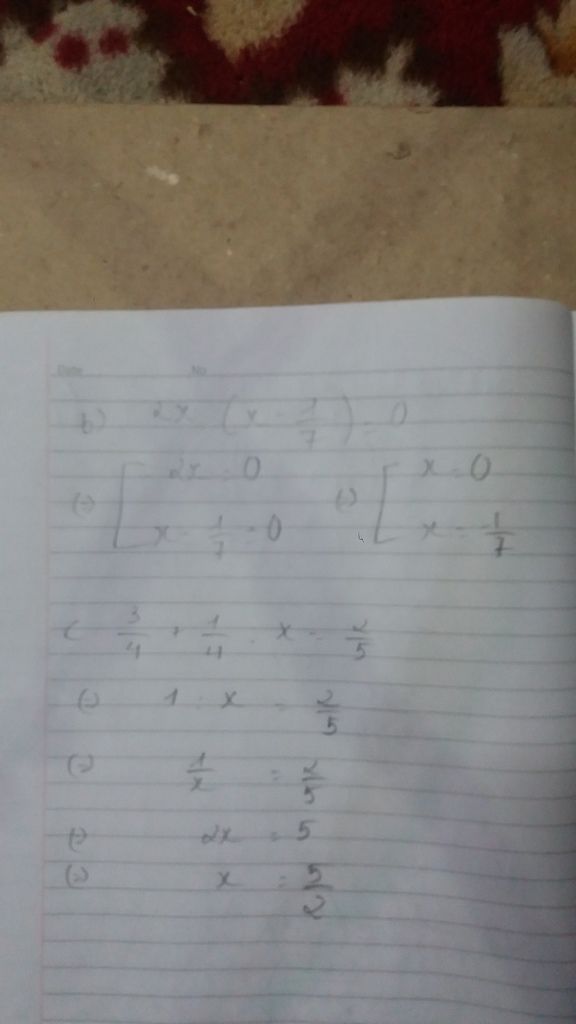 Date No
b) 2x . (x - 1/7) = 0
(=) [ 2x = 0 (=) [ x = 0
x - 1/7 = 0 x = 1/7
c 3/4 + 1/4 : x = 2/5
(=) 1 : x = 2/5
(=) 1/x = 2/5
(=) 2x = 5
(=) x = 5/2